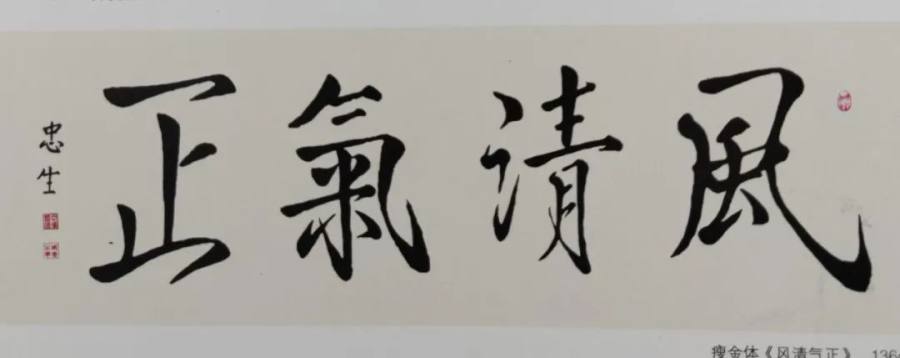 風清氣正
忠生
瘦金体《风清气正》 136